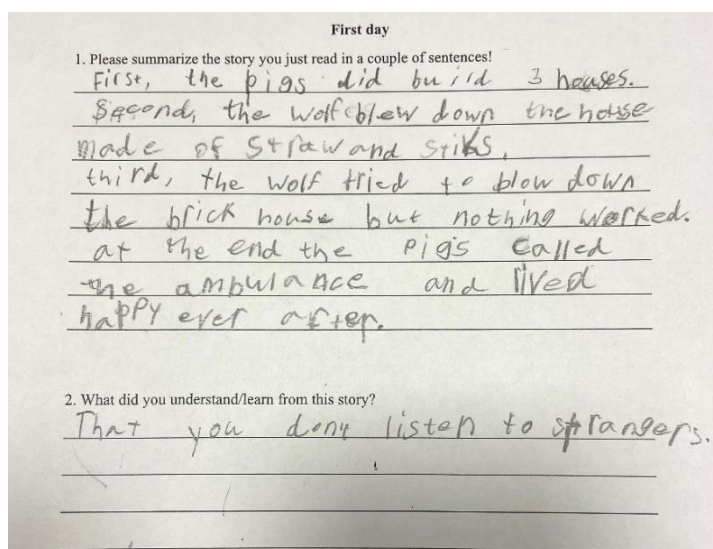 First day
1. Please summarize the story you just read in a couple of sentences!
First, the pigs did build 3 houses.
Second, the wolf blew down the house
made of straw and stiks,
third, the wolf tried to blow down
the brick house but nothing worked.
at the end the pigs called
the ambulance and lived
happy ever after.
2. What did you understand/learn from this story?
That you dont listen to strangers.